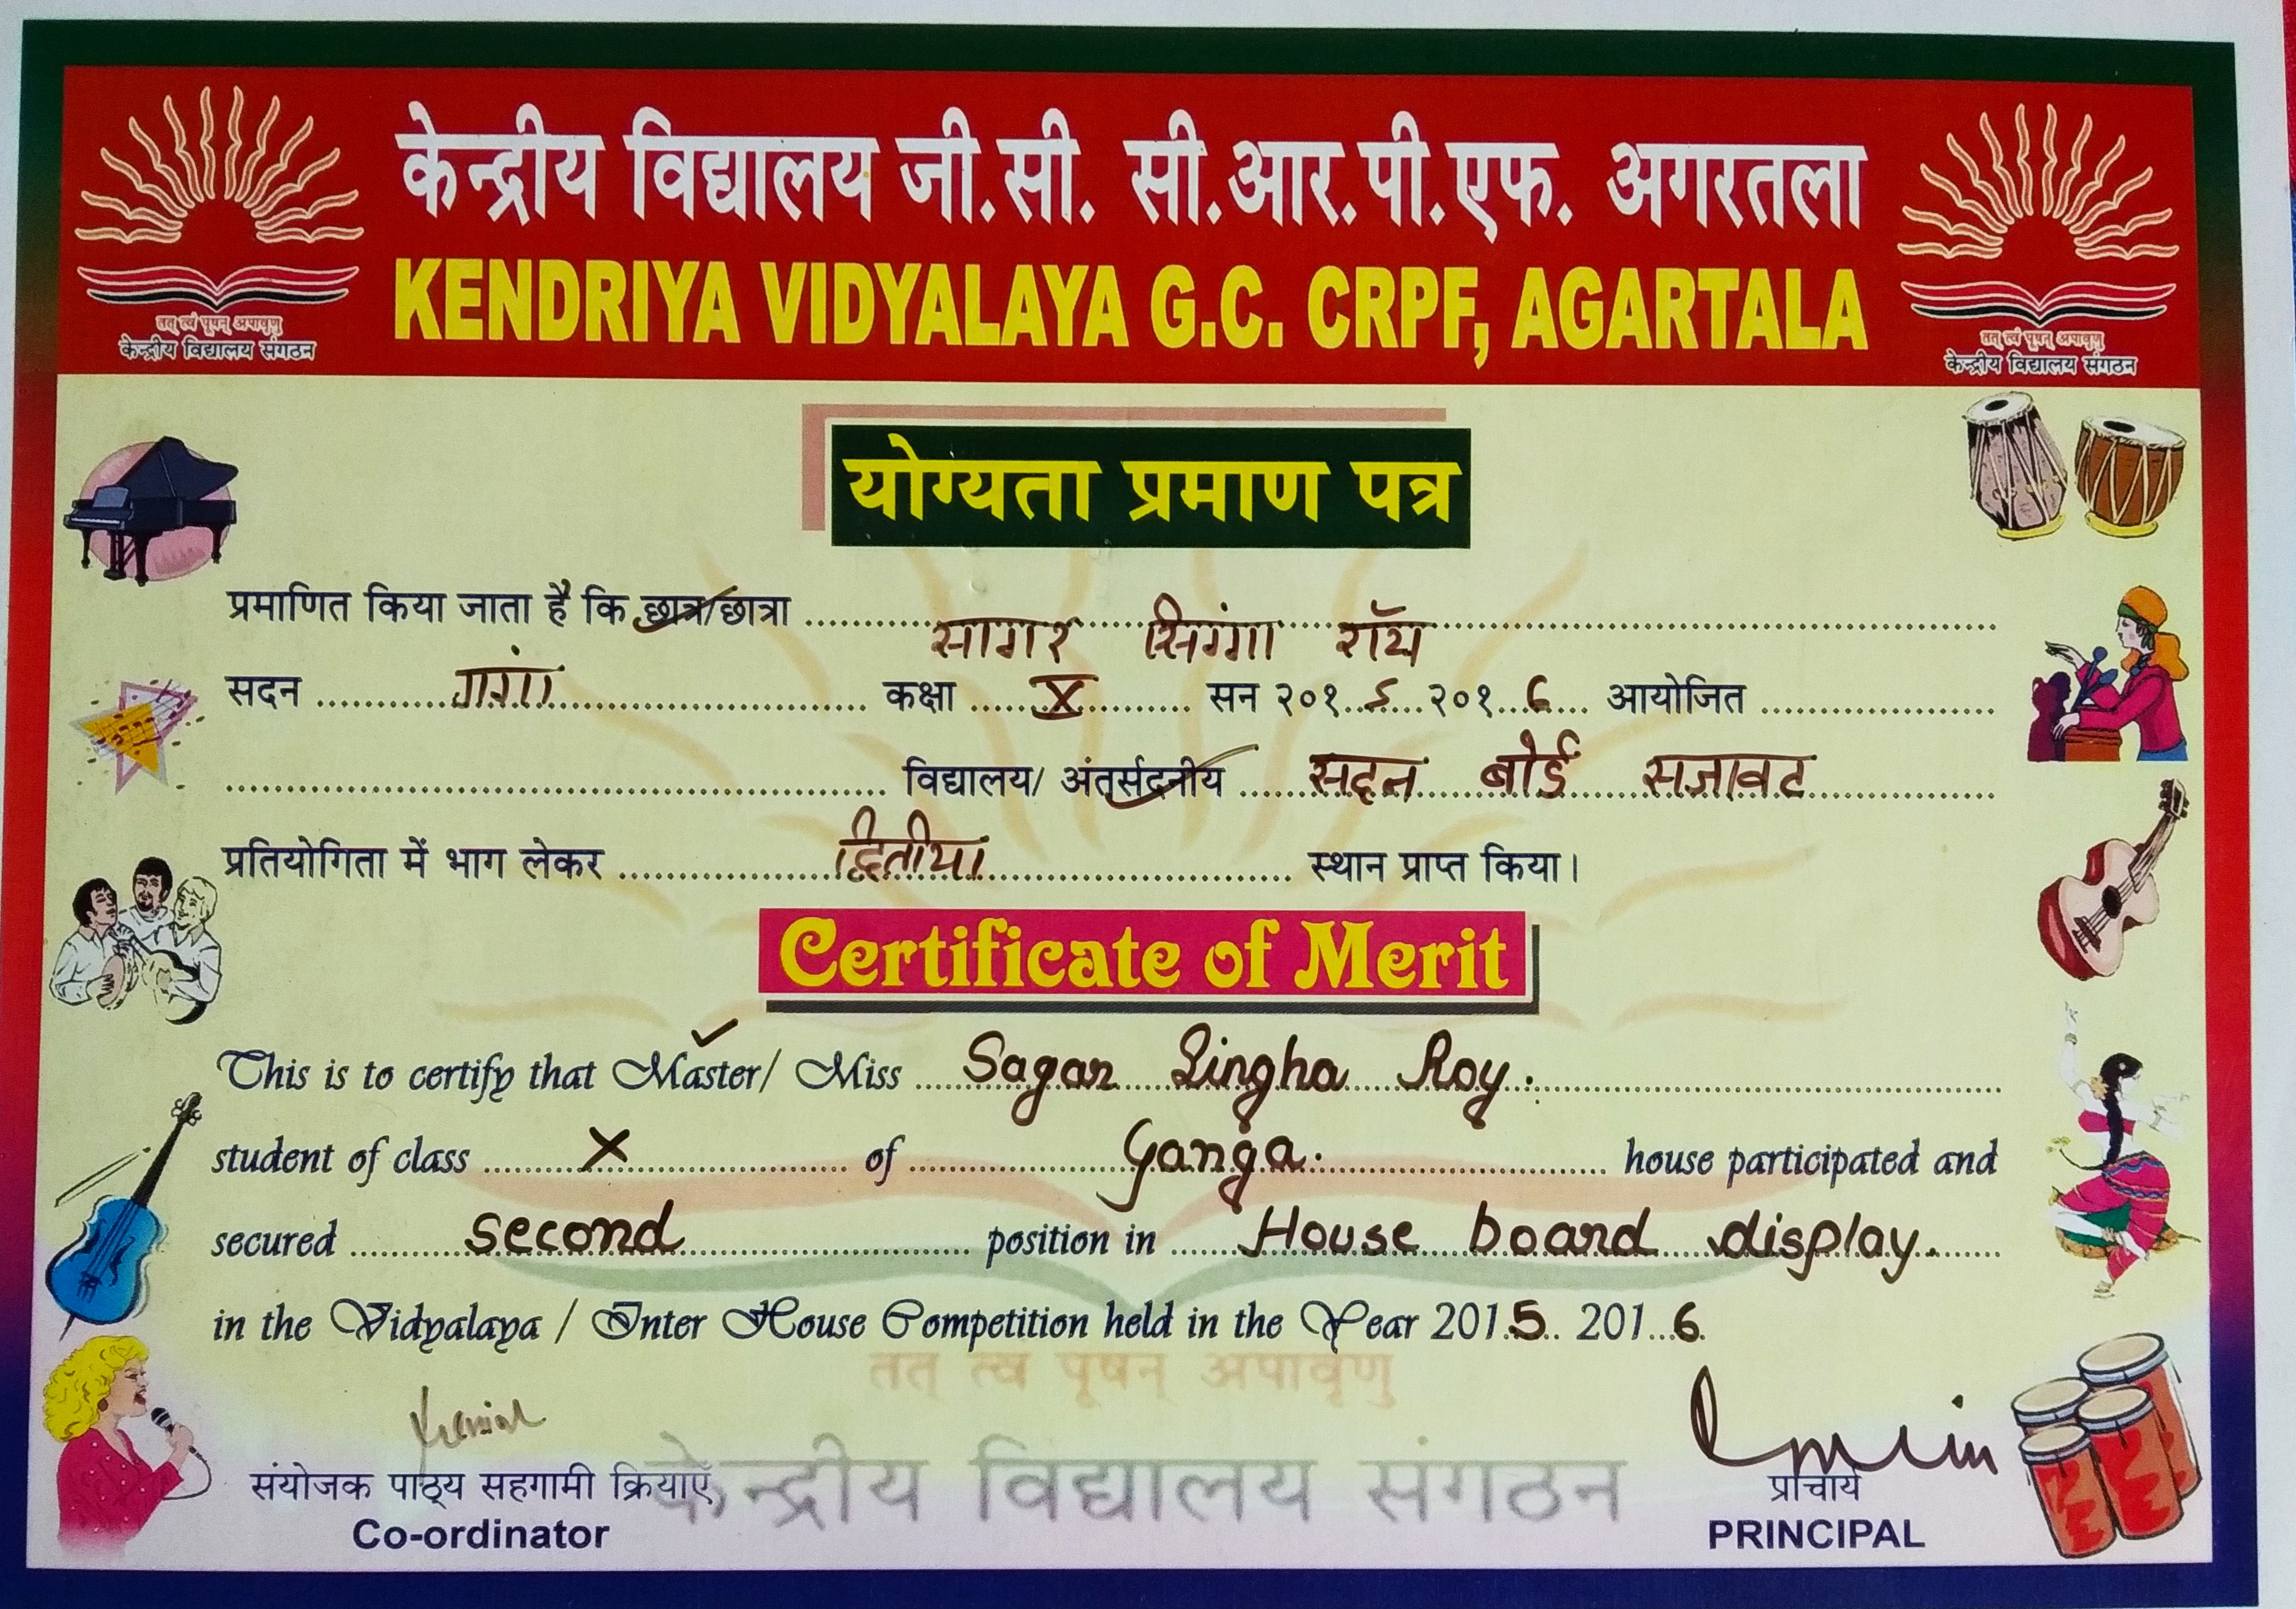 केन्द्रीय विद्यालय जी.सी. सी.आर.पी.एफ. अगरतला
KENDRIYA VIDYALAYA G.C. CRPF, AGARTALA
तत् त्वं पूषन् अपावृणु
केन्द्रीय विद्यालय संगठन
तत् त्वं पूषन् अपावृणु
केन्द्रीय विद्यालय संगठन
योग्यता प्रमाण पत्र
प्रमाणित किया जाता है कि छात्र/छात्रा सागर सिंगा रॉय
सदन गंगा कक्षा X सन २०१५ २०१6 आयोजित
विद्यालय/ अंतर्सदनीय सदन बोर्ड सजावट
प्रतियोगिता में भाग लेकर द्वितीया स्थान प्राप्त किया।
Certificate of Merit
This is to certify that Master/ Miss Sagar Singha Roy.
student of class X of Ganga. house participated and
secured second position in House board display.
in the Vidyalaya / Inter House Competition held in the Year 2015 2016.
तत् त्व पूषन् अपावृणु
केन्द्रीय विद्यालय संगठन
संयोजक पाठ्य सहगामी क्रियाएँ
Co-ordinator
प्राचार्य
PRINCIPAL